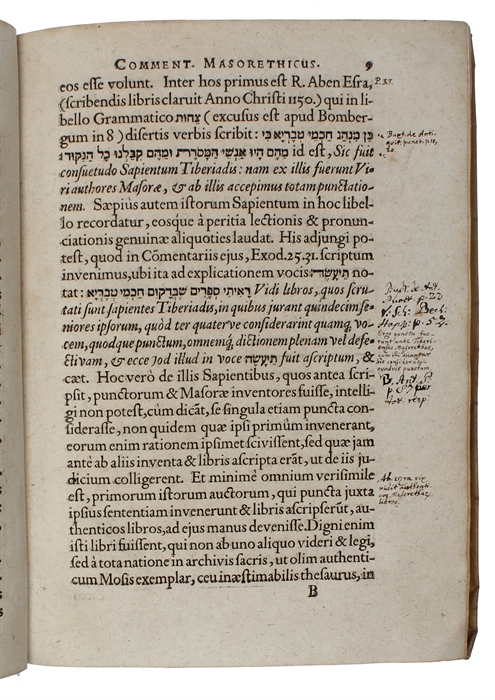 COMMENT. MASORETHICUS. 9
eos esse volunt. Inter hos primus est R. Aben Esra,
(scribendis libris claruit Anno Christi 1150.) qui in li-
bello Grammatico צחות (excusus est apud Bomber-
gum in 8) disertis verbis scribit: כן מנהג חכמי טבריא כי
מהם היו אנשי המסורת ומהם קבלנו כל הנקוד id est, Sic fuit
consuetudo Sapientum Tiberiadis: nam ex illis fuerunt Vi-
ri authores Masoræ, & ab illis accepimus totam punctatio-
nem. Sæpiùs autem istorum Sapientum in hoc libel-
lo recordatur, eosque à peritia lectionis & pronun-
ciationis genuinæ aliquoties laudat. His adjungi po-
test, quod in Cōmentariis ejus, Exod. 25. 31. scriptum
invenimus, ubi ita ad explicationem vocis תיעשה no-
tat: ראיתי ספרים שבדקום חכמי טבריא Vidi libros, quos scru-
tati sunt sapientes Tiberiadis, in quibus jurant quindecim se-
niores ipsorum, quòd ter quaterve considerarint quamq́, vo-
cem, quodque punctum, omnemq́, dictionem plenam vel defe-
ctivam, & ecce Jod illud in voce תיעשה fuit ascriptum, &
cæt. Hoc verò de illis Sapientibus, quos antea scri-
psit, punctorum & Masoræ inventores fuisse, intelli-
gi non potest, cùm dicāt, se singula etiam puncta con-
siderasse, non quidem quæ ipsi primùm invenerant,
eorum enim rationem ipsimet scivissent, sed quæ jam
antè ab aliis inventa & libris ascripta erāt, ut de iis ju-
dicium colligerent. Et minimè omnium verisimile
est, primorum istorum auctorum, qui puncta juxta
ipsius sententiam invenerunt & libris ascripserūt, au-
thenticos libros, ad ejus manus devenisse. Digni enim
isti libri fuissent, qui non ab uno aliquo videri & legi,
sed à tota natione in archivis sacris, ut olim authenti-
cum Mosis exemplar, ceu inæstimabilis thesaurus, in
B
P. 33.